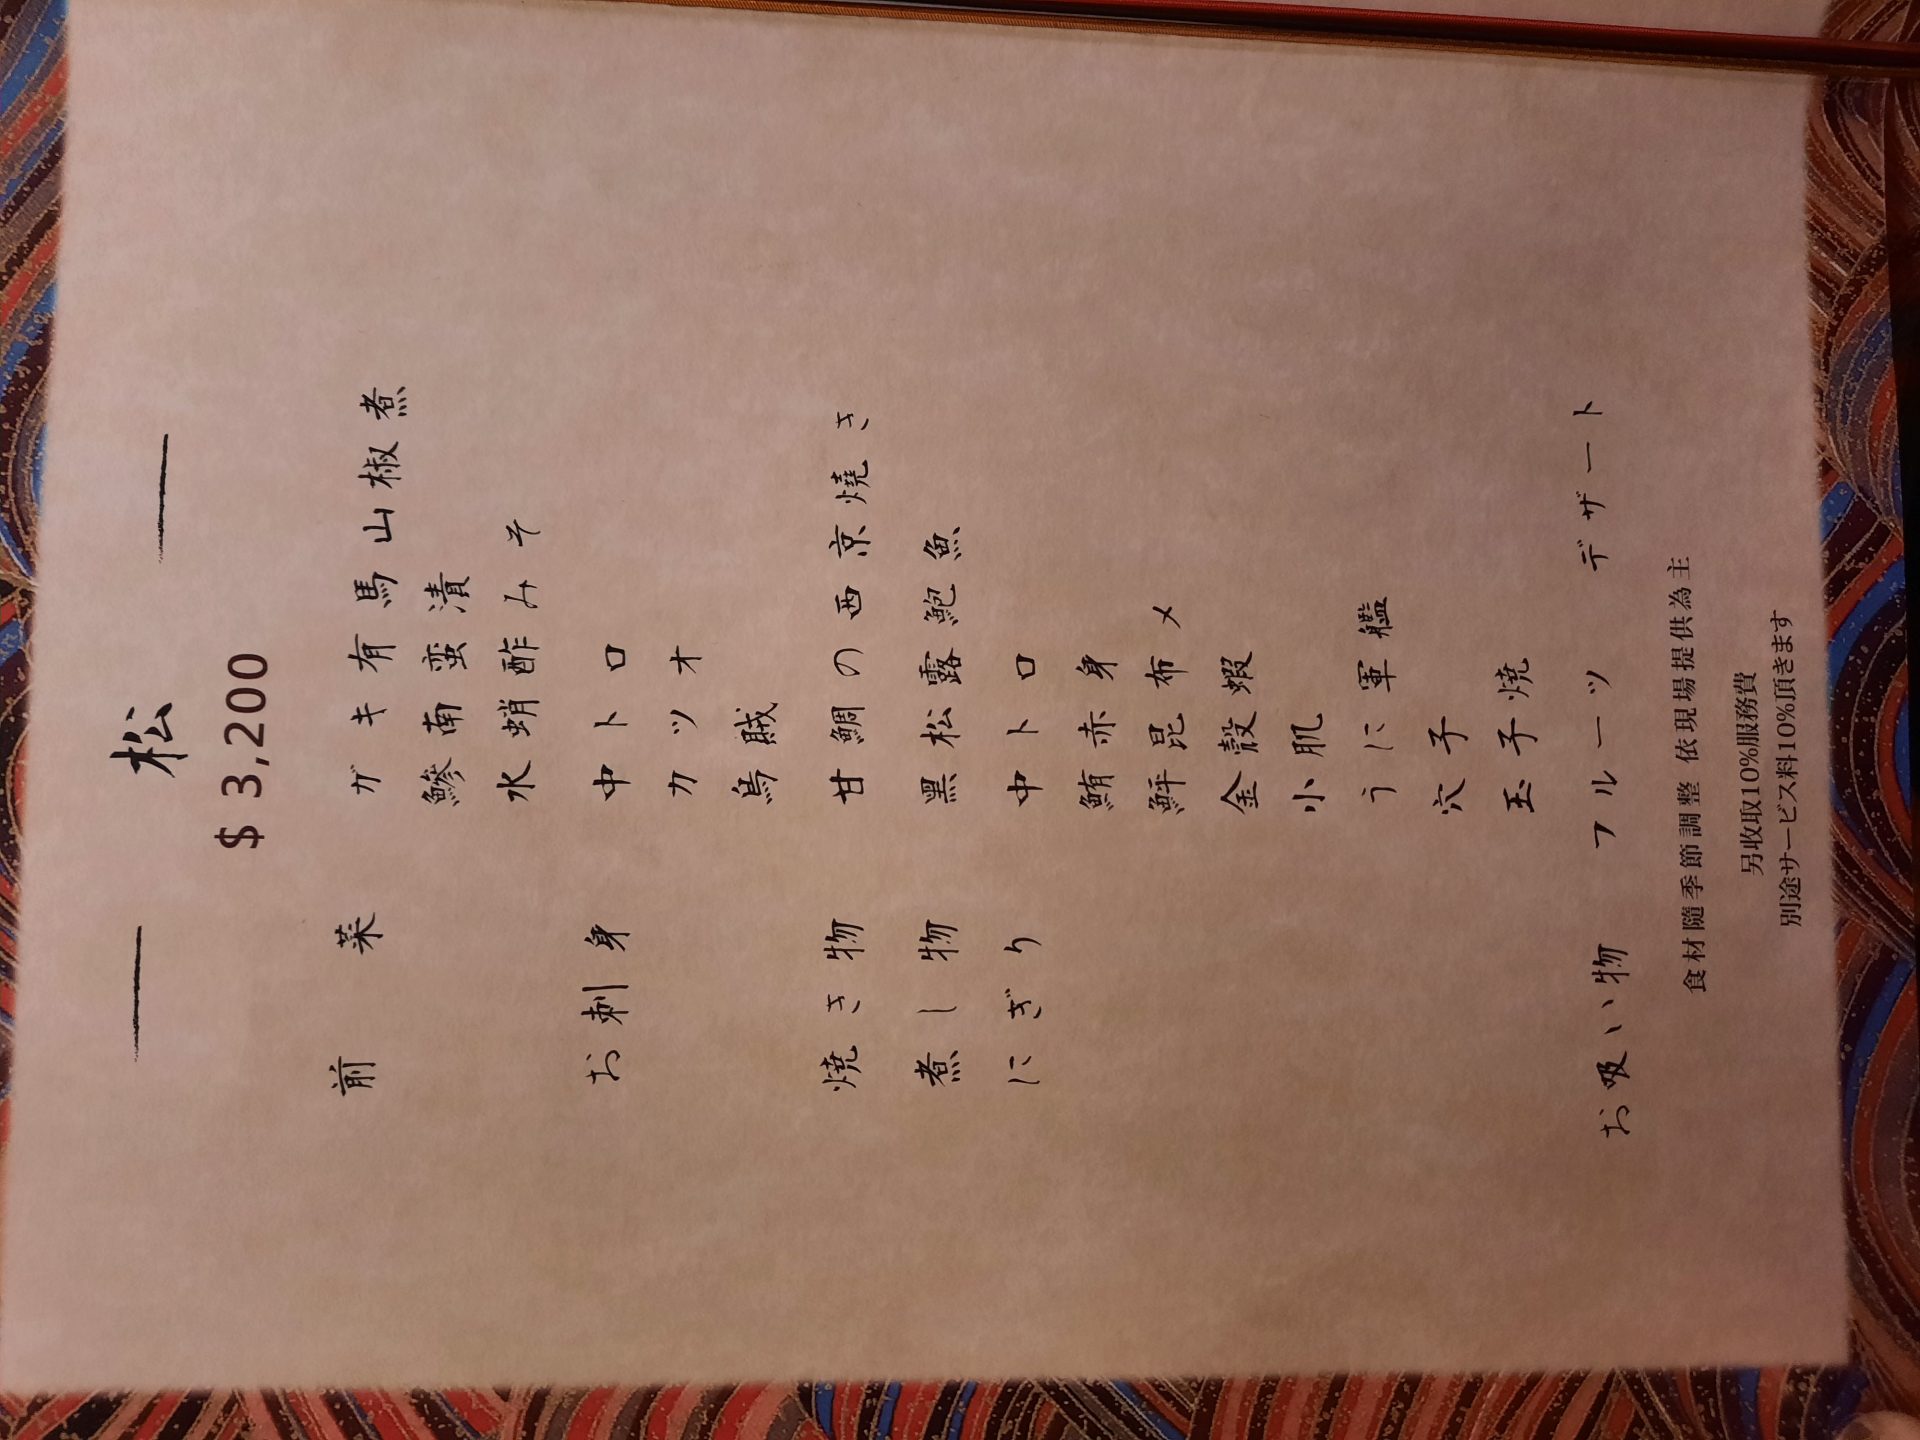 松
$ 3,200
前菜 ガキ有馬山椒煮
鰺南蛮漬
水蛸酢みそ
お刺身 中トロ
カツオ
烏賊
焼き物 甘鯛の西京燒き
煮し物 黑松露鮑魚
にぎり 中トロ
鮪赤身
鮃昆布〆
金殻蝦
小肌
うに軍艦
穴子
玉子焼
お吸い物 フルーツ デザート
食材隨季節調整 依現場提供為主
另收取10%服務費
別途サービス料10%頂きます